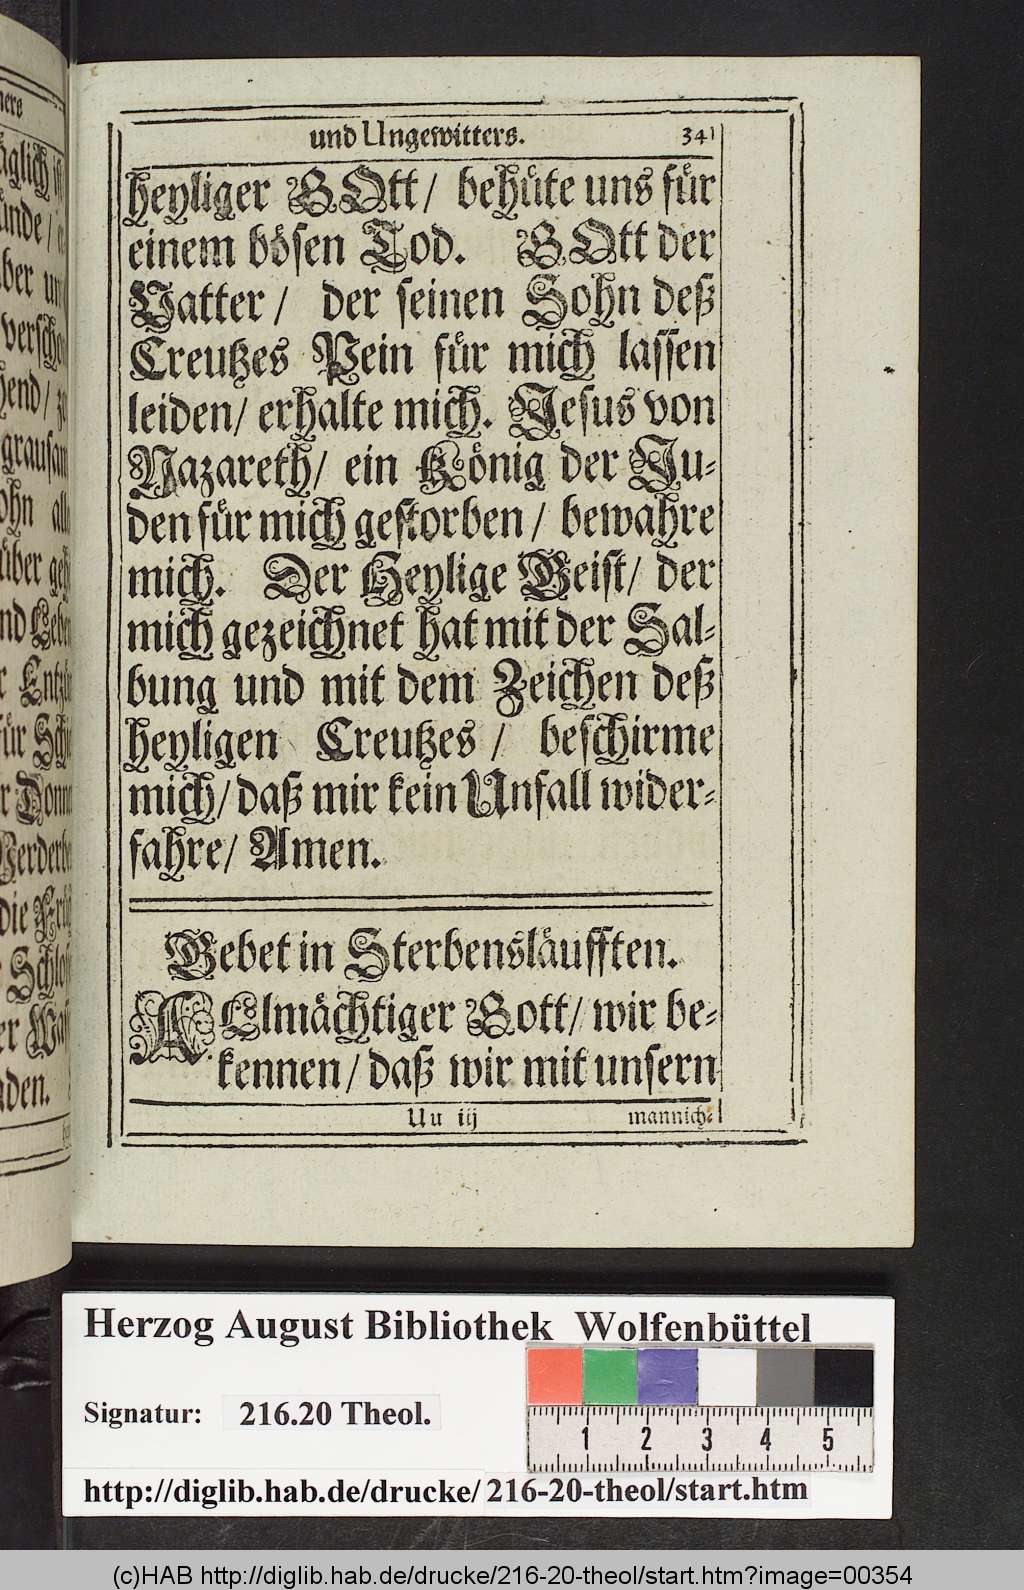 und Ungewitters. 341
heyliger GOtt/ behüte uns für
einem bösen Tod. GOtt der
Vatter/ der seinen Sohn deß
Creutzes Pein für mich lassen
leiden/ erhalte mich. Jesus von
Nazareth/ ein König der Ju-
den für mich gestorben/ bewahre
mich. Der Heylige Geist/ der
mich gezeichnet hat mit der Sal-
bung und mit dem Zeichen deß
heyligen Creutzes/ beschirme
mich/ daß mir kein Unfall wider-
fahre/ Amen.
Gebet in Sterbensläufften.
ALlmächtiger Gott/ wir be-
kennen/ daß wir mit unsern
Uu iij mannich-
Herzog August Bibliothek Wolfenbüttel
Signatur: 216.20 Theol.
1 2 3 4 5
http://diglib.hab.de/drucke/216-20-theol/start.htm
(c)HAB http://diglib.hab.de/drucke/216-20-theol/start.htm?image=00354